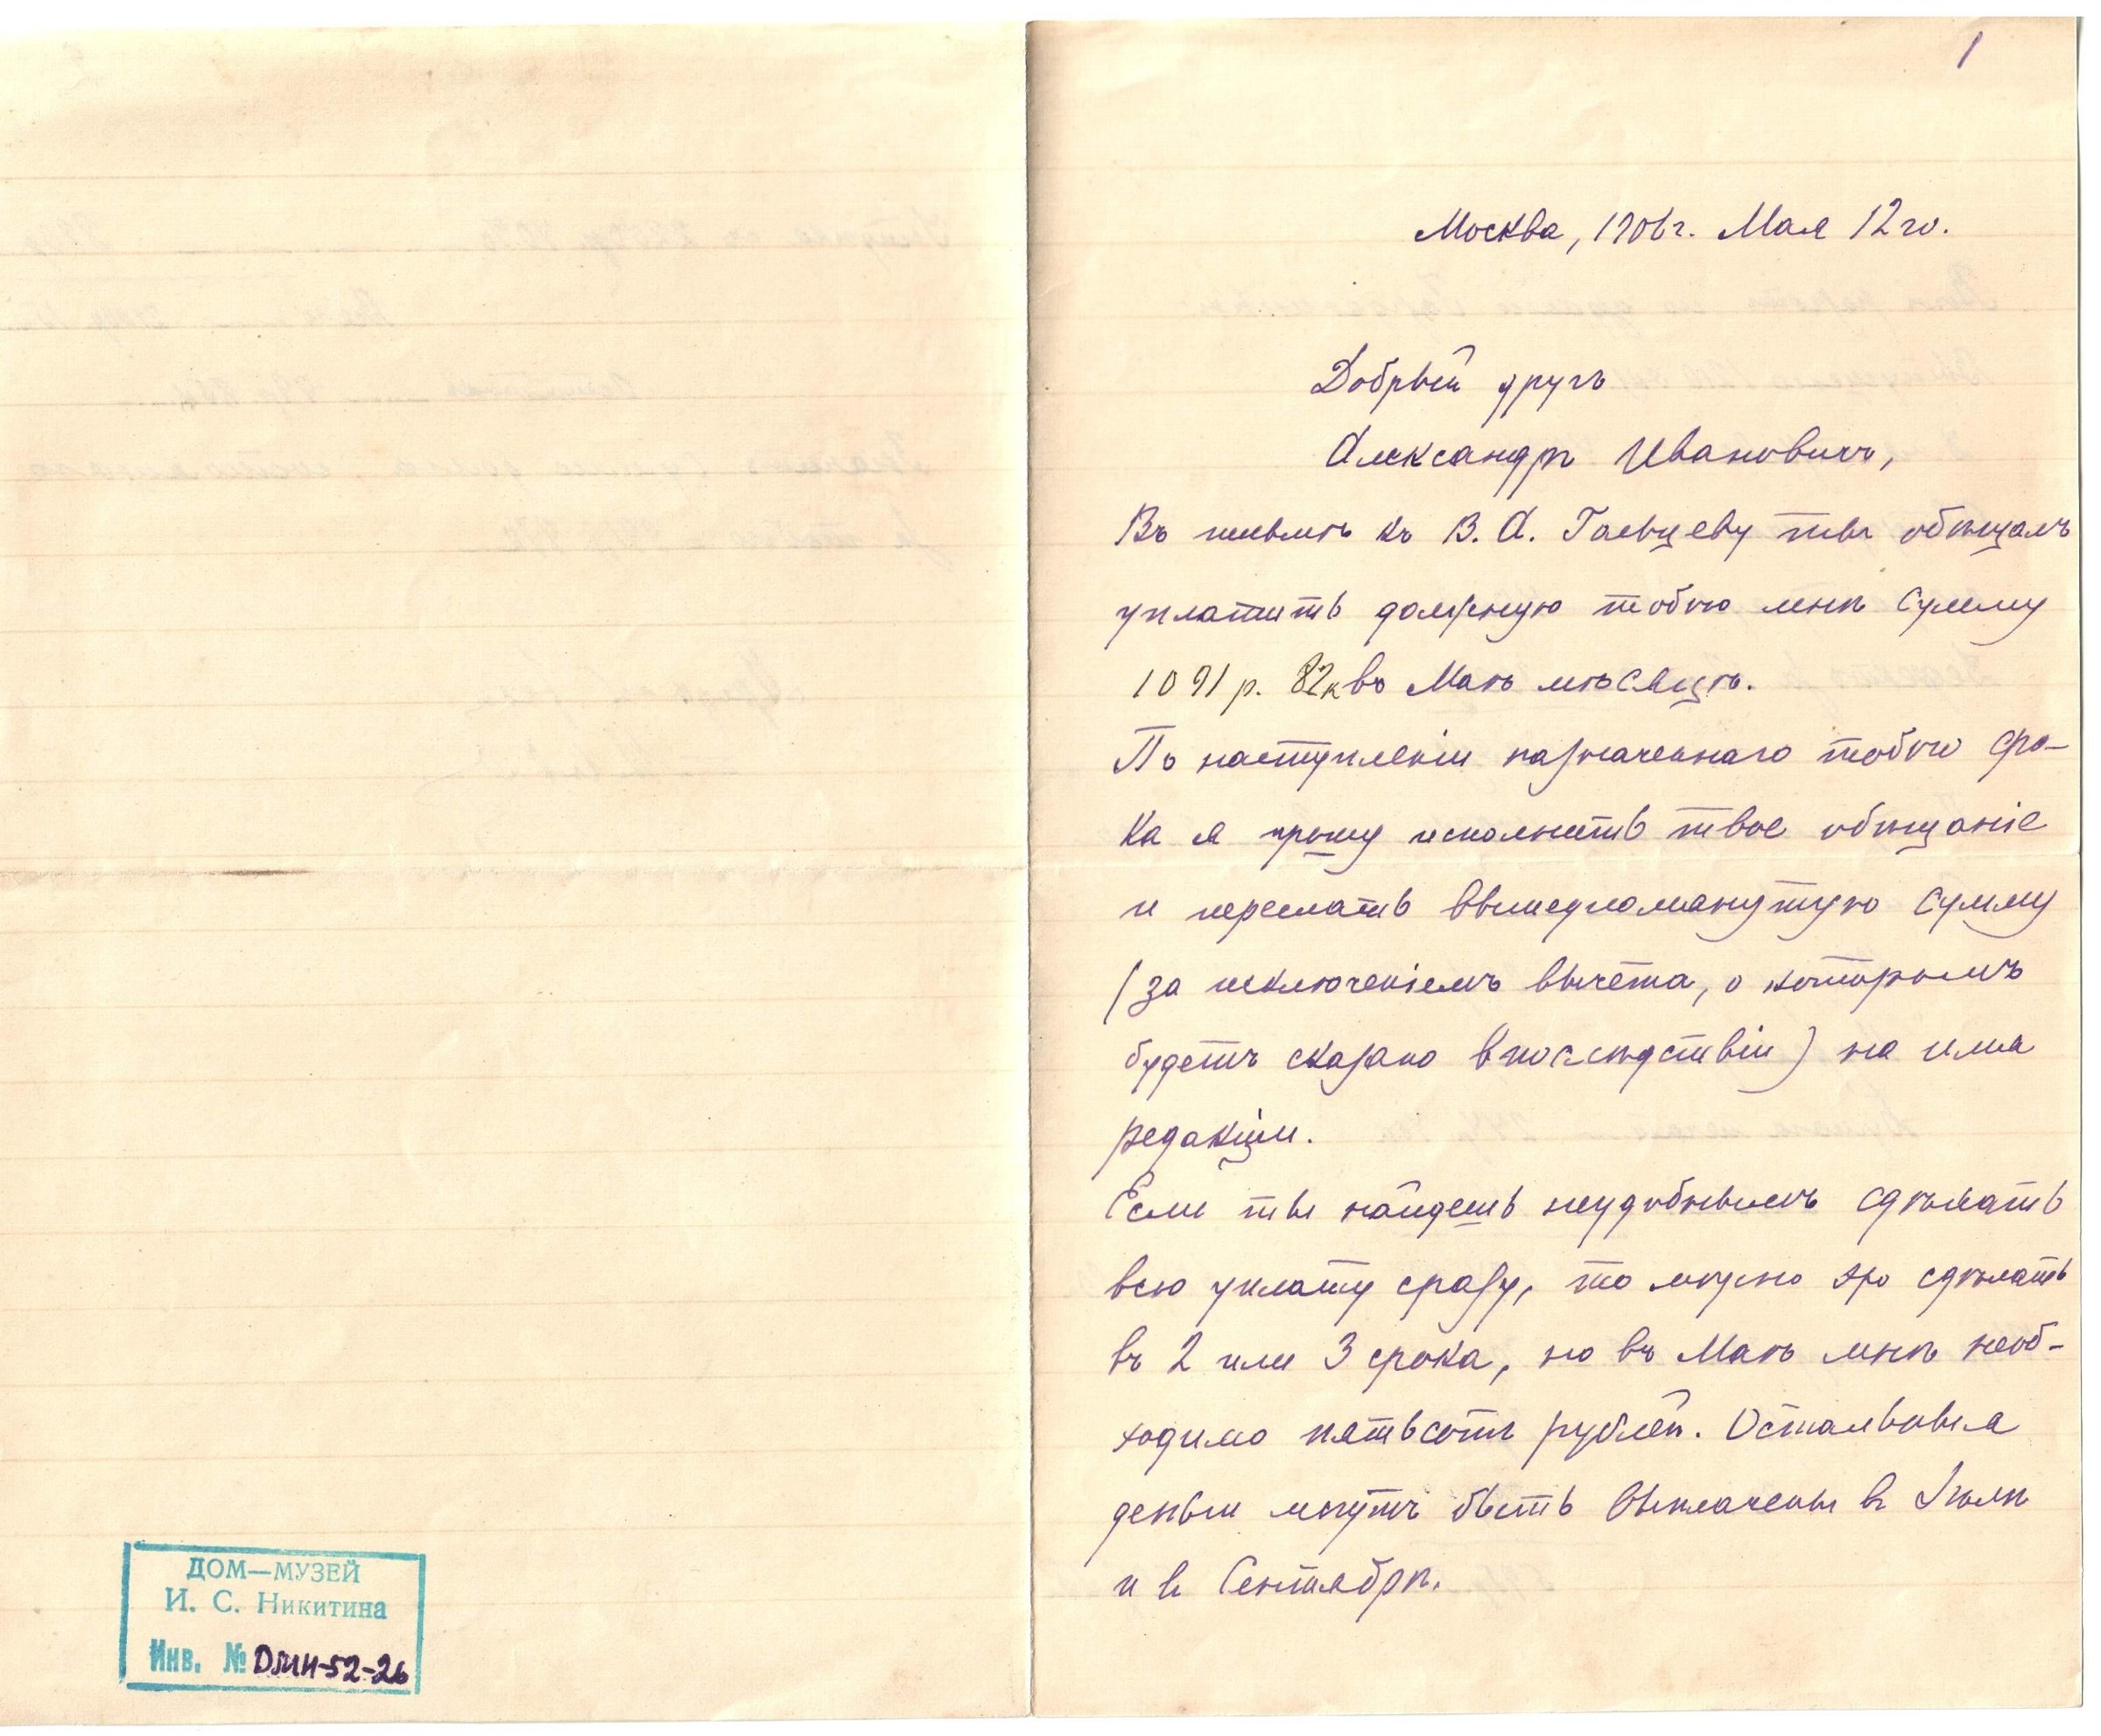 1
Москва, 1906 г. Мая 12 го.
Добрый другъ
Александръ Ивановичъ,
Въ письмѣ къ В. А. Гольцеву ты обѣщалъ
уплатить должную тобою мнѣ сумму
1091 р. 82 к въ Маѣ мѣсяцѣ.
По наступленiи назначеннаго тобою сро-
ка я прошу исполнить твое обѣщанiе
и переслать вышеупомянутую сумму
(за исключенiемъ вычета, о которомъ
будетъ сказано впослѣдствiи) на имя
редакцiи.
Если ты найдешь неудобнымъ сдѣлать
всю уплату сразу, то можно это сдѣлать
въ 2 или 3 срока, но въ Маѣ мнѣ необ-
ходимо пятьсотъ рублей. Остальныя
деньги могутъ быть выплачены въ Iюлѣ
и въ Сентябрѣ.
ДОМ—МУЗЕЙ
И. С. Никитина
Инв. № ДМН-52-26